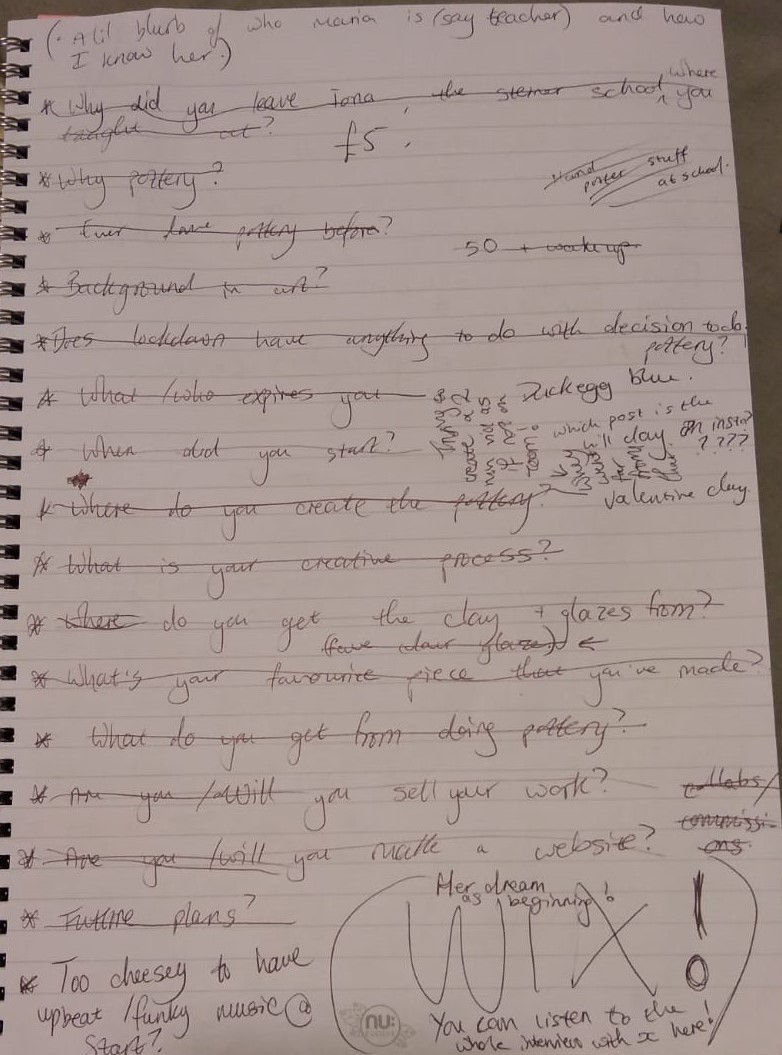 (• A lil blurb of who maria is (say teacher) and how
I know her.)
* Why did you leave Iona, the steiner school, where you
taught at?
£5.
* Why pottery?
Hand
poster stuff
at school.
* Ever done pottery before?
50 + wake up
* Background in art?
* Does lockdown have anything to do with decision to do
pottery?
* What /who expires you
Duckegg blue.
* When did you start?
which post is the
clay on insta?
????
* Where do you create the pottery?
valentine clay
* What is your creative process?
* Where do you get the clay + glazes from?
(fave colour glaze) ←
* What's your favourite piece that you've made?
* What do you get from doing pottery?
* Are you /Will you sell your work?
collabs/
commissi-
ons.
* Are you /will you make a website?
* Future plans?
Her dream
as beginning!
WIX!
* Too cheesey to have
upbeat /funky music @
Start?
nu:
You can listen to the
whole interview with x here!